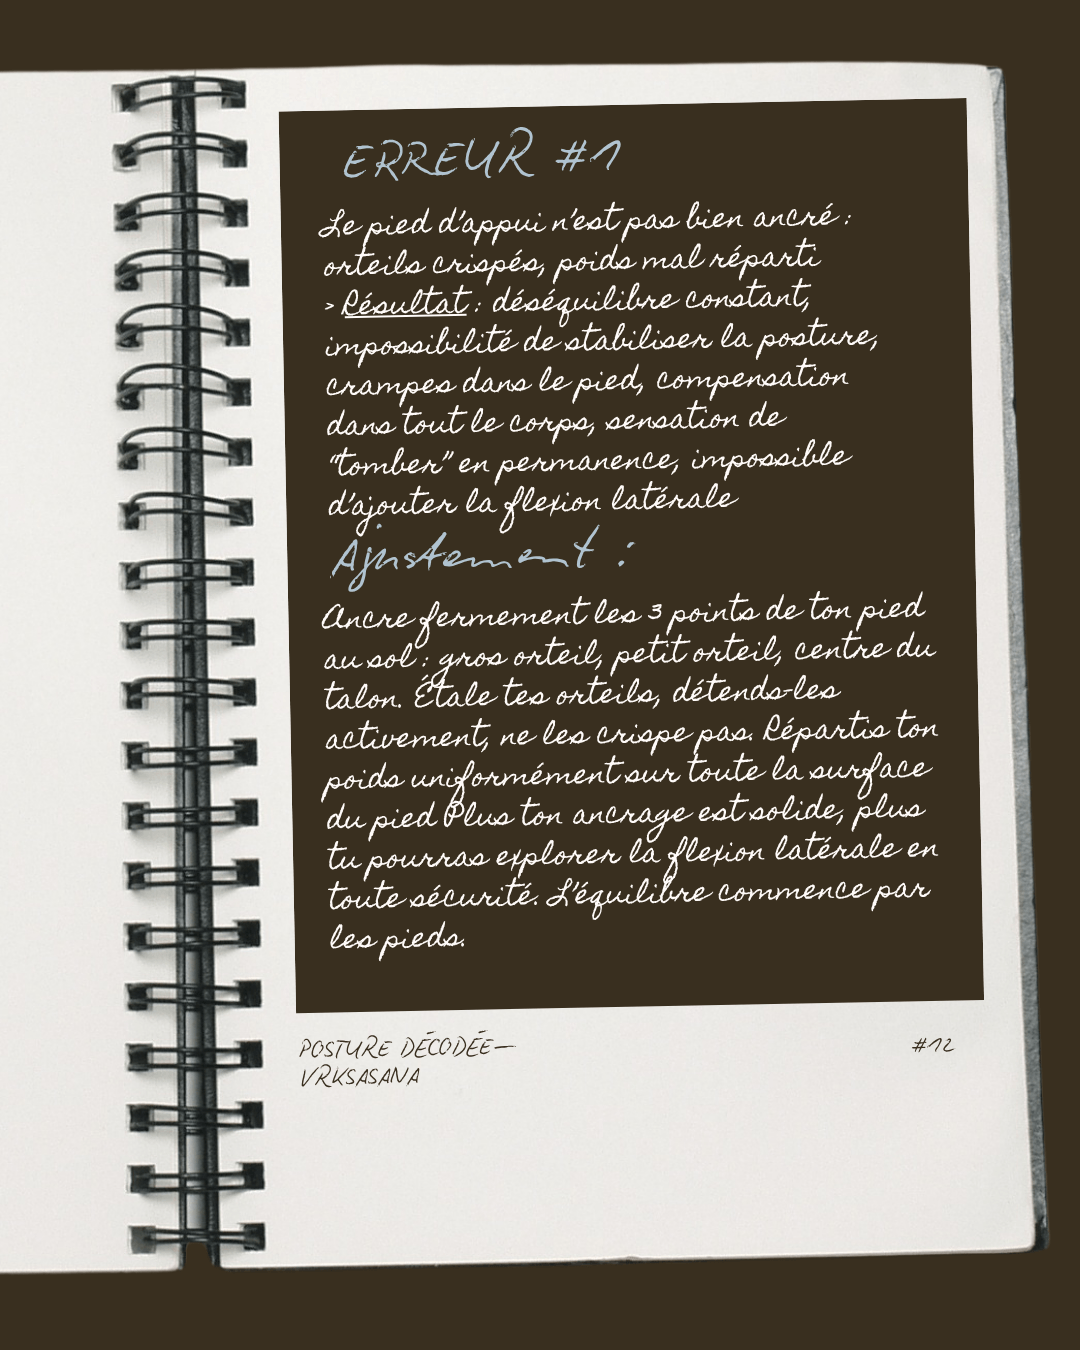 ERREUR #1
Le pied d'appui n'est pas bien ancré :
orteils crispés, poids mal réparti
> Résultat : déséquilibre constant,
impossibilité de stabiliser la posture,
crampes dans le pied, compensation
dans tout le corps, sensation de
"tomber" en permanence, impossible
d'ajouter la flexion latérale
Ajustement :
Ancre fermement les 3 points de ton pied
au sol : gros orteil, petit orteil, centre du
talon. Étale tes orteils, détends-les
activement, ne les crispe pas. Répartis ton
poids uniformément sur toute la surface
du pied Plus ton ancrage est solide, plus
tu pourras explorer la flexion latérale en
toute sécurité. L'équilibre commence par
les pieds.
POSTURE DÉCODÉE—
VRKSASANA
#12